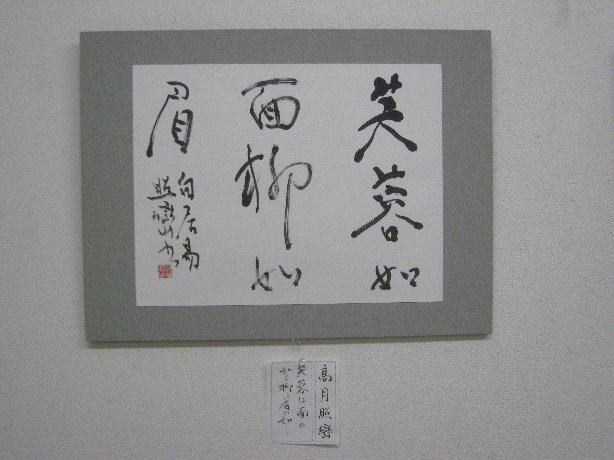 芙蓉如
面柳如
眉
白居易
照巒書
高月照巒
芙蓉は面の
如く柳は眉の如し